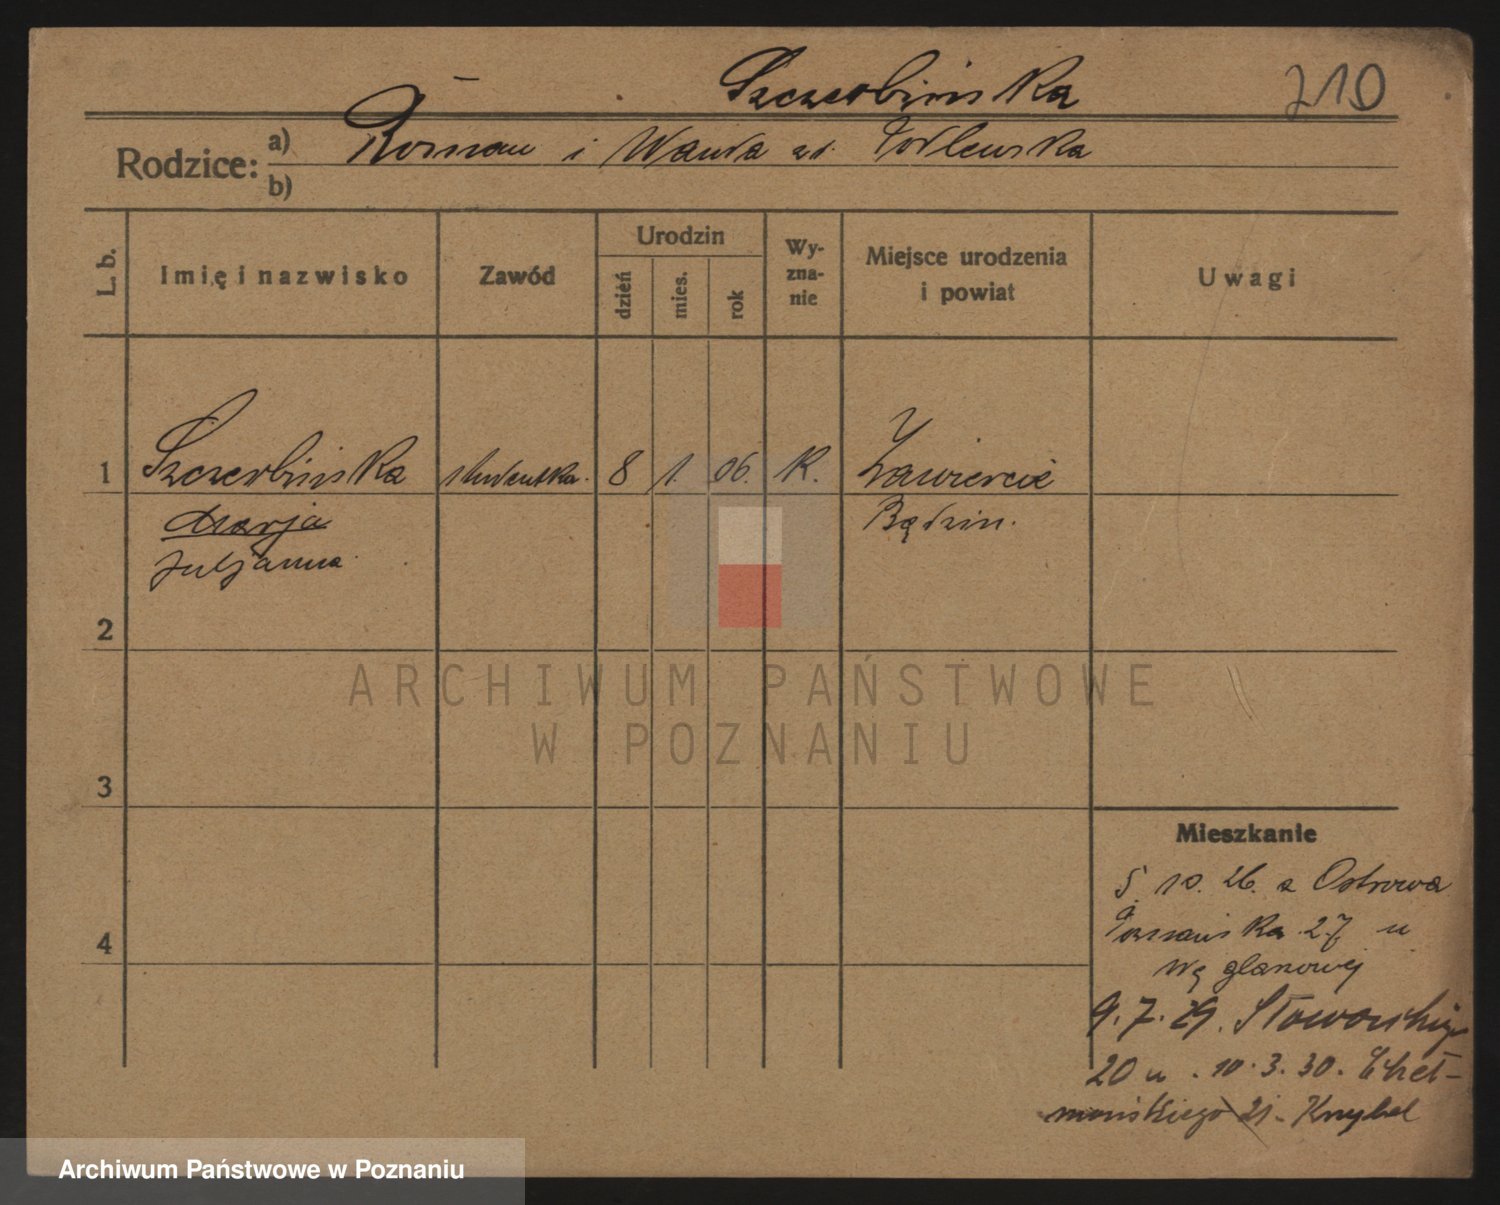 Szczerbińska
210
Rodzice:
a) Roman i Wanda zd. Podlewska
b)
L. b.
Imię i nazwisko
Zawód
Urodzin
dzień
mies.
rok
Wy-
zna-
nie
Miejsce urodzenia
i powiat
Uwagi
1 Szczerbińska studentka. 8 1. 06. K. Zawiercie
Marja Będzin.
Juljanna
2
3
4
ARCHIWUM PAŃSTWOWE
W POZNANIU
Mieszkanie
5. 10. 26. z Ostrowa
Poznańska 27 u
Węglanowej
9. 7. 29. Słowackiego
20 u . 10. 3. 30. Cheł-
mońskiego 21 - Knybel
Archiwum Państwowe w Poznaniu